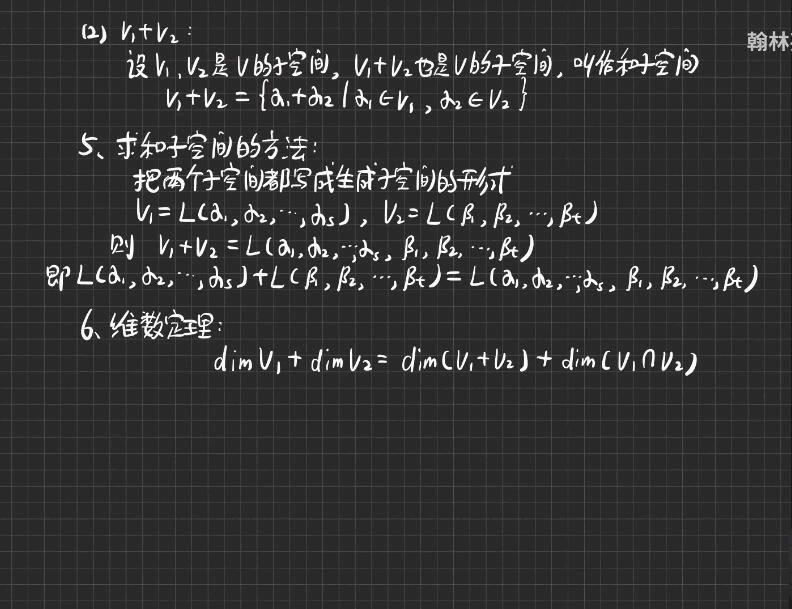 (2) V₁+V₂:
翰林
设V₁,V₂是V的子空间, V₁+V₂也是V的子空间, 叫作和子空间
V₁+V₂ = {α₁+α₂ | α₁∈V₁, α₂∈V₂}
5、求和子空间的方法:
把两个子空间都写成生成子空间的形式
V₁=L(α₁,α₂,…,αs), V₂=L(β₁,β₂,…,βt)
则 V₁+V₂=L(α₁,α₂,…,αs,β₁,β₂,…,βt)
即L(α₁,α₂,…,αs)+L(β₁,β₂,…,βt)=L(α₁,α₂,…,αs,β₁,β₂,…,βt)
6、维数定理:
dimV₁+dimV₂= dim(V₁+V₂)+dim(V₁∩V₂)